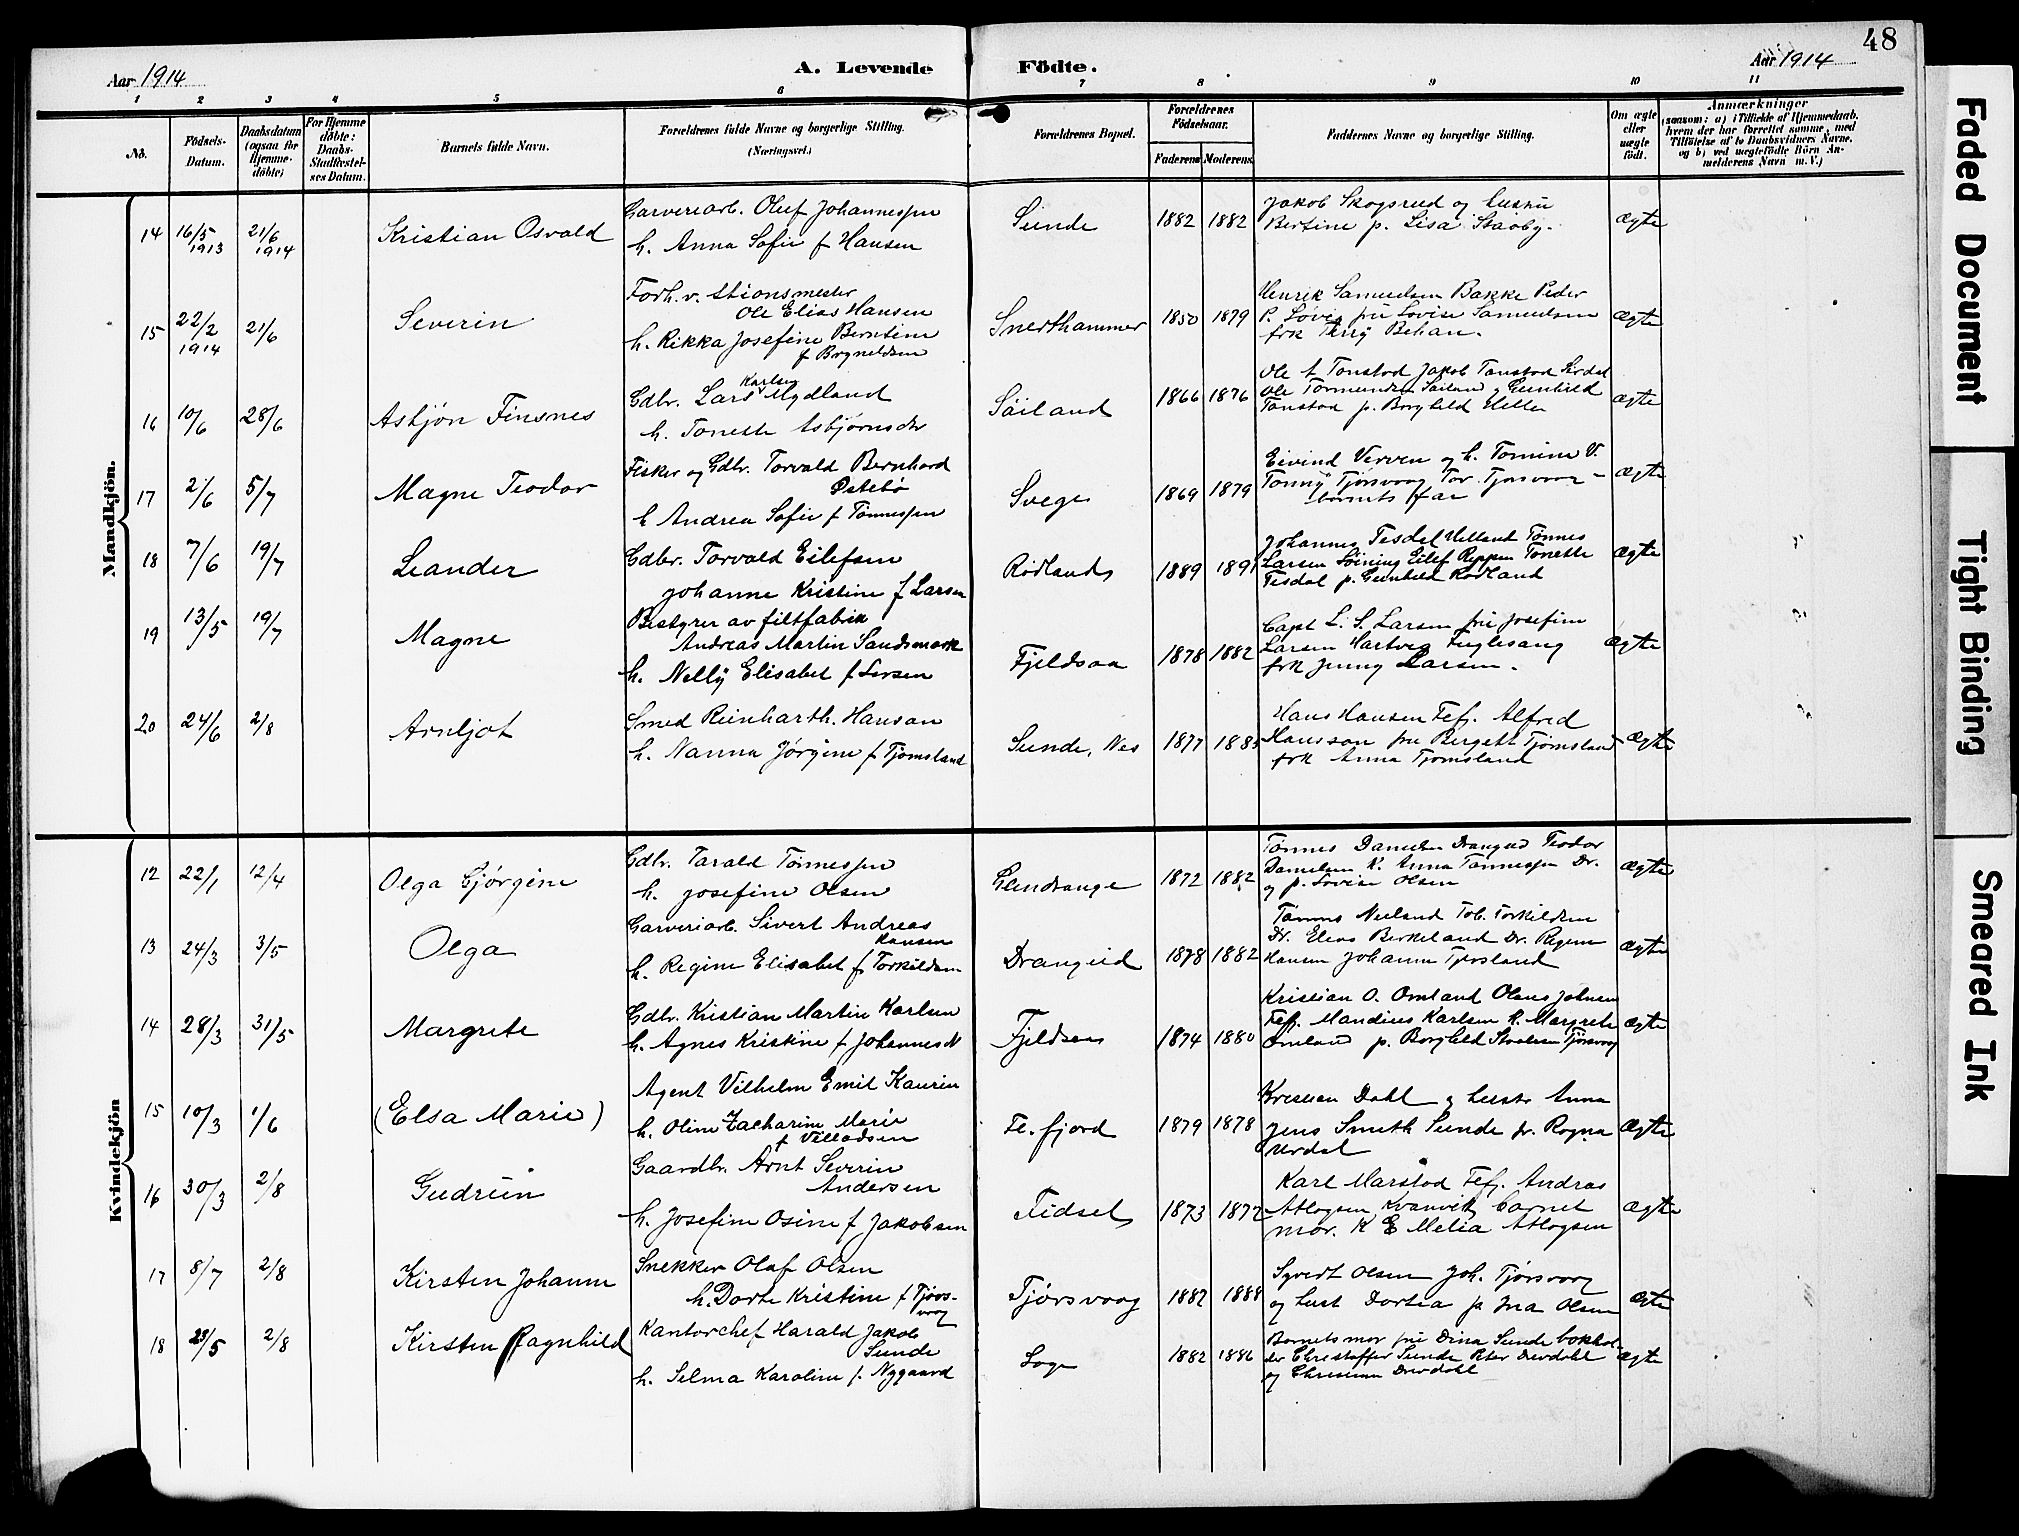 48
Aar 1914
A. Levende Födte.
Aar 1914
1 2 3 4 5 6 7 8 9 10 11
No.
Födsels-Datum.
Daabsdatum (ogsaa for Hjemme-döbte)
For Hjemme döbte: Daabs-Stadfæstel-ses Datum.
Barnets fulde Navn.
Forældrenes fulde Navne og borgerlige Stilling.
(Næringsvei.)
Forældrenes Bopæl.
Forældrenes Födselsaar.
Faderens Moderens
Faddernes Navne og borgerlige Stilling.
Om ægte eller uægte födt.
Anmærkninger
(saasom: a) i Tilfælde af Hjemmedaab, hvem der har forrettet samme, med Tilföielse af to Daabsvidners Navne, og b) ved uægtefödte Börn An-melderens Navn m. V.)
Mandkjön.
14 16/5 1913 21/6 1914 Kristian Osvald
Garveriarb. Oluf Johannessen
h. Anna Sofie f Hansen
Sunde 1882 1882
Jakob Skogsrud og hustru
Bertine p. Lisa Staaby.
Ægte
15 22/2 1914 21/6 Severin
Forh. v. stionsmester
Ole Elias Hansen
h. Rikka Josefine Berntine
f Brynildsen
Snerthammer 1850 1879
Henrik Samuelsen Bakke Peder
P. Lövig fru Lovise Samuelsen
frk Behan.
Ægte
16 10/6 28/6 Asbjön Finsnes
Gdbr. Lars Karlsen Mydland
h. Tonette Asbjörnsdtr
Säiland 1866 1876
Ole t Tonstad Jakob Tonstad Sirdal
Ole Tormundsen Säiland g Gunhild
Tonstad p. Borghild Helle
Ægte
17 2/6 5/7 Magne Teodor
Fisker og Gdbr. Torvald Bernhard
Østebö
h Andrea Sofie f Tönnessen
Svege 1869 1879
Eivind Verven og h. Tomine V.
Tonny Tjørsvaag Tor. Tjørsvaag -
barnets far
Ægte
18 7/6 19/7 Leander
Gdbr. Torvald Eilefsen
Johanne Kristine f Larsen
Rödland 1889 1891
Johannes Tesdal Helland Tönnes
Larsen Söining Eilef Reppen Tonette
Tesdal p. Gunhild Rödland
Ægte
19 13/5 19/7 Magne
Bestyrer av filtfabrik
Andreas Martin Sandsmark
h. Nelly Elisabet f Larsen
Fjeldsaa 1878 1882
Capt L. S. Larsen fru Josefine
Larsen Hartvig Fuglesang
frk Jenny Larsen.
Ægte
20 24/6 2/8 Arnljot
Smed Reinhart h. Hansan
h. Nanna Jørgine f Tjomsland
Sunde, Nes 1877 1885
Hans Hansen Fef. Alfred
Hansson fru Bergett Tjomsland
frk Anna Tjomsland
Ægte
Kvindekjön
12 22/1 12/4 Olga Gjørgine
Gdbr. Tarald Tönnessen
h. Josefine Olsen
Glendrange 1872 1882
Tönnes Danielsen Drangeid Teodor
Danielsen K. Anna Tönnessen Dr.
og p. Lovise Olsen
Ægte
13 24/3 3/5 Olga
Garveriarb. Sivert Andreas
Hansen
h. Regine Elisabet f Torkildsen
Drangeid 1878 1882
Tönnes Neeland Tob. Torkildsen
Dr. Elias Birkeland Dr. Regine
Hansen Johanne Tjørsland
Ægte
14 28/3 31/5 Margrete
Gdbr. Kristian Martin Karlsen
h. Agnes Kristine f Johannesdtr
Fjeldsaa 1874 1880
Kristian O. Omland Olaus Johnsen
Fef. Mandius Karlsen K. Margrete
Omland p. Borghild Tjörsvaag
Ægte
15 10/3 1/6 (Elsa Marie)
Agent Vilhelm Emil Kaurin
h. Oline Zacharine Marie
f Villadsen
Fl. fjord 1879 1878
Kristian Dahl g hustr Anna
Jens Smith Sunde fr. Ragna
Urdal
Ægte
16 30/3 2/8 Gudrun
Gaardbr. Arnt Severin
Andersen
h. Josefine Osine f Jakobsen
Fidsel 1873 1872
Karl Marstad Fef. Andras
Atlogsen Kvanvik barnet
mor. K E Melia Atlogsen
Ægte
17 8/7 2/8 Kirsten Johanne
Snekker Olaf Olsen
h. Dorte Kristine f Tjörs-
vaag
Tjörsvaag 1882 1888
Sivert Olsen Joh. Tjörsvaag
og hust Dortea p Ina Olsen
Ægte
18 23/5 2/8 Kirsten Ragnhild
Kantorchef Harald Jakob
Sunde
h. Selma Karoline f. Nygaard
Loge 1882 1886
Barnets mor fru Dina Sunde bokhol-
der Christoffer Sunde Peter Duvdahl
og Christian Duvdahl
Ægte
Faded Document
Tight Binding
Smeared Ink